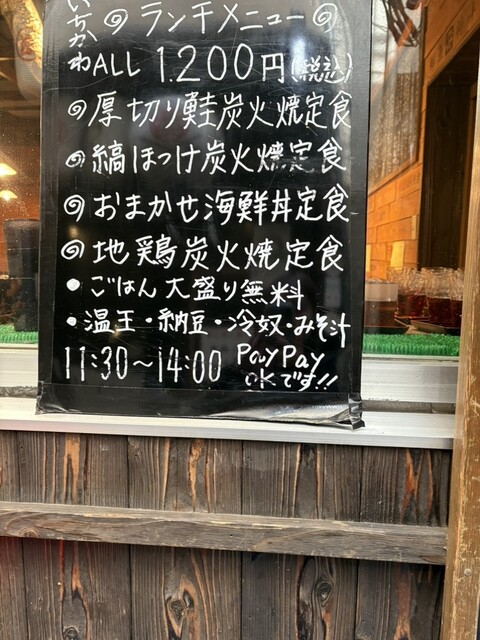 いちかわ
ランチメニュー
ALL 1.200円(税込)
厚切り鮭炭火焼定食
縞ほっけ炭火焼定食
おまかせ海鮮丼定食
地鶏炭火焼定食
・ごはん大盛り無料
・温玉・納豆・冷奴・みそ汁
11:30~14:00 PayPay
OKです!!